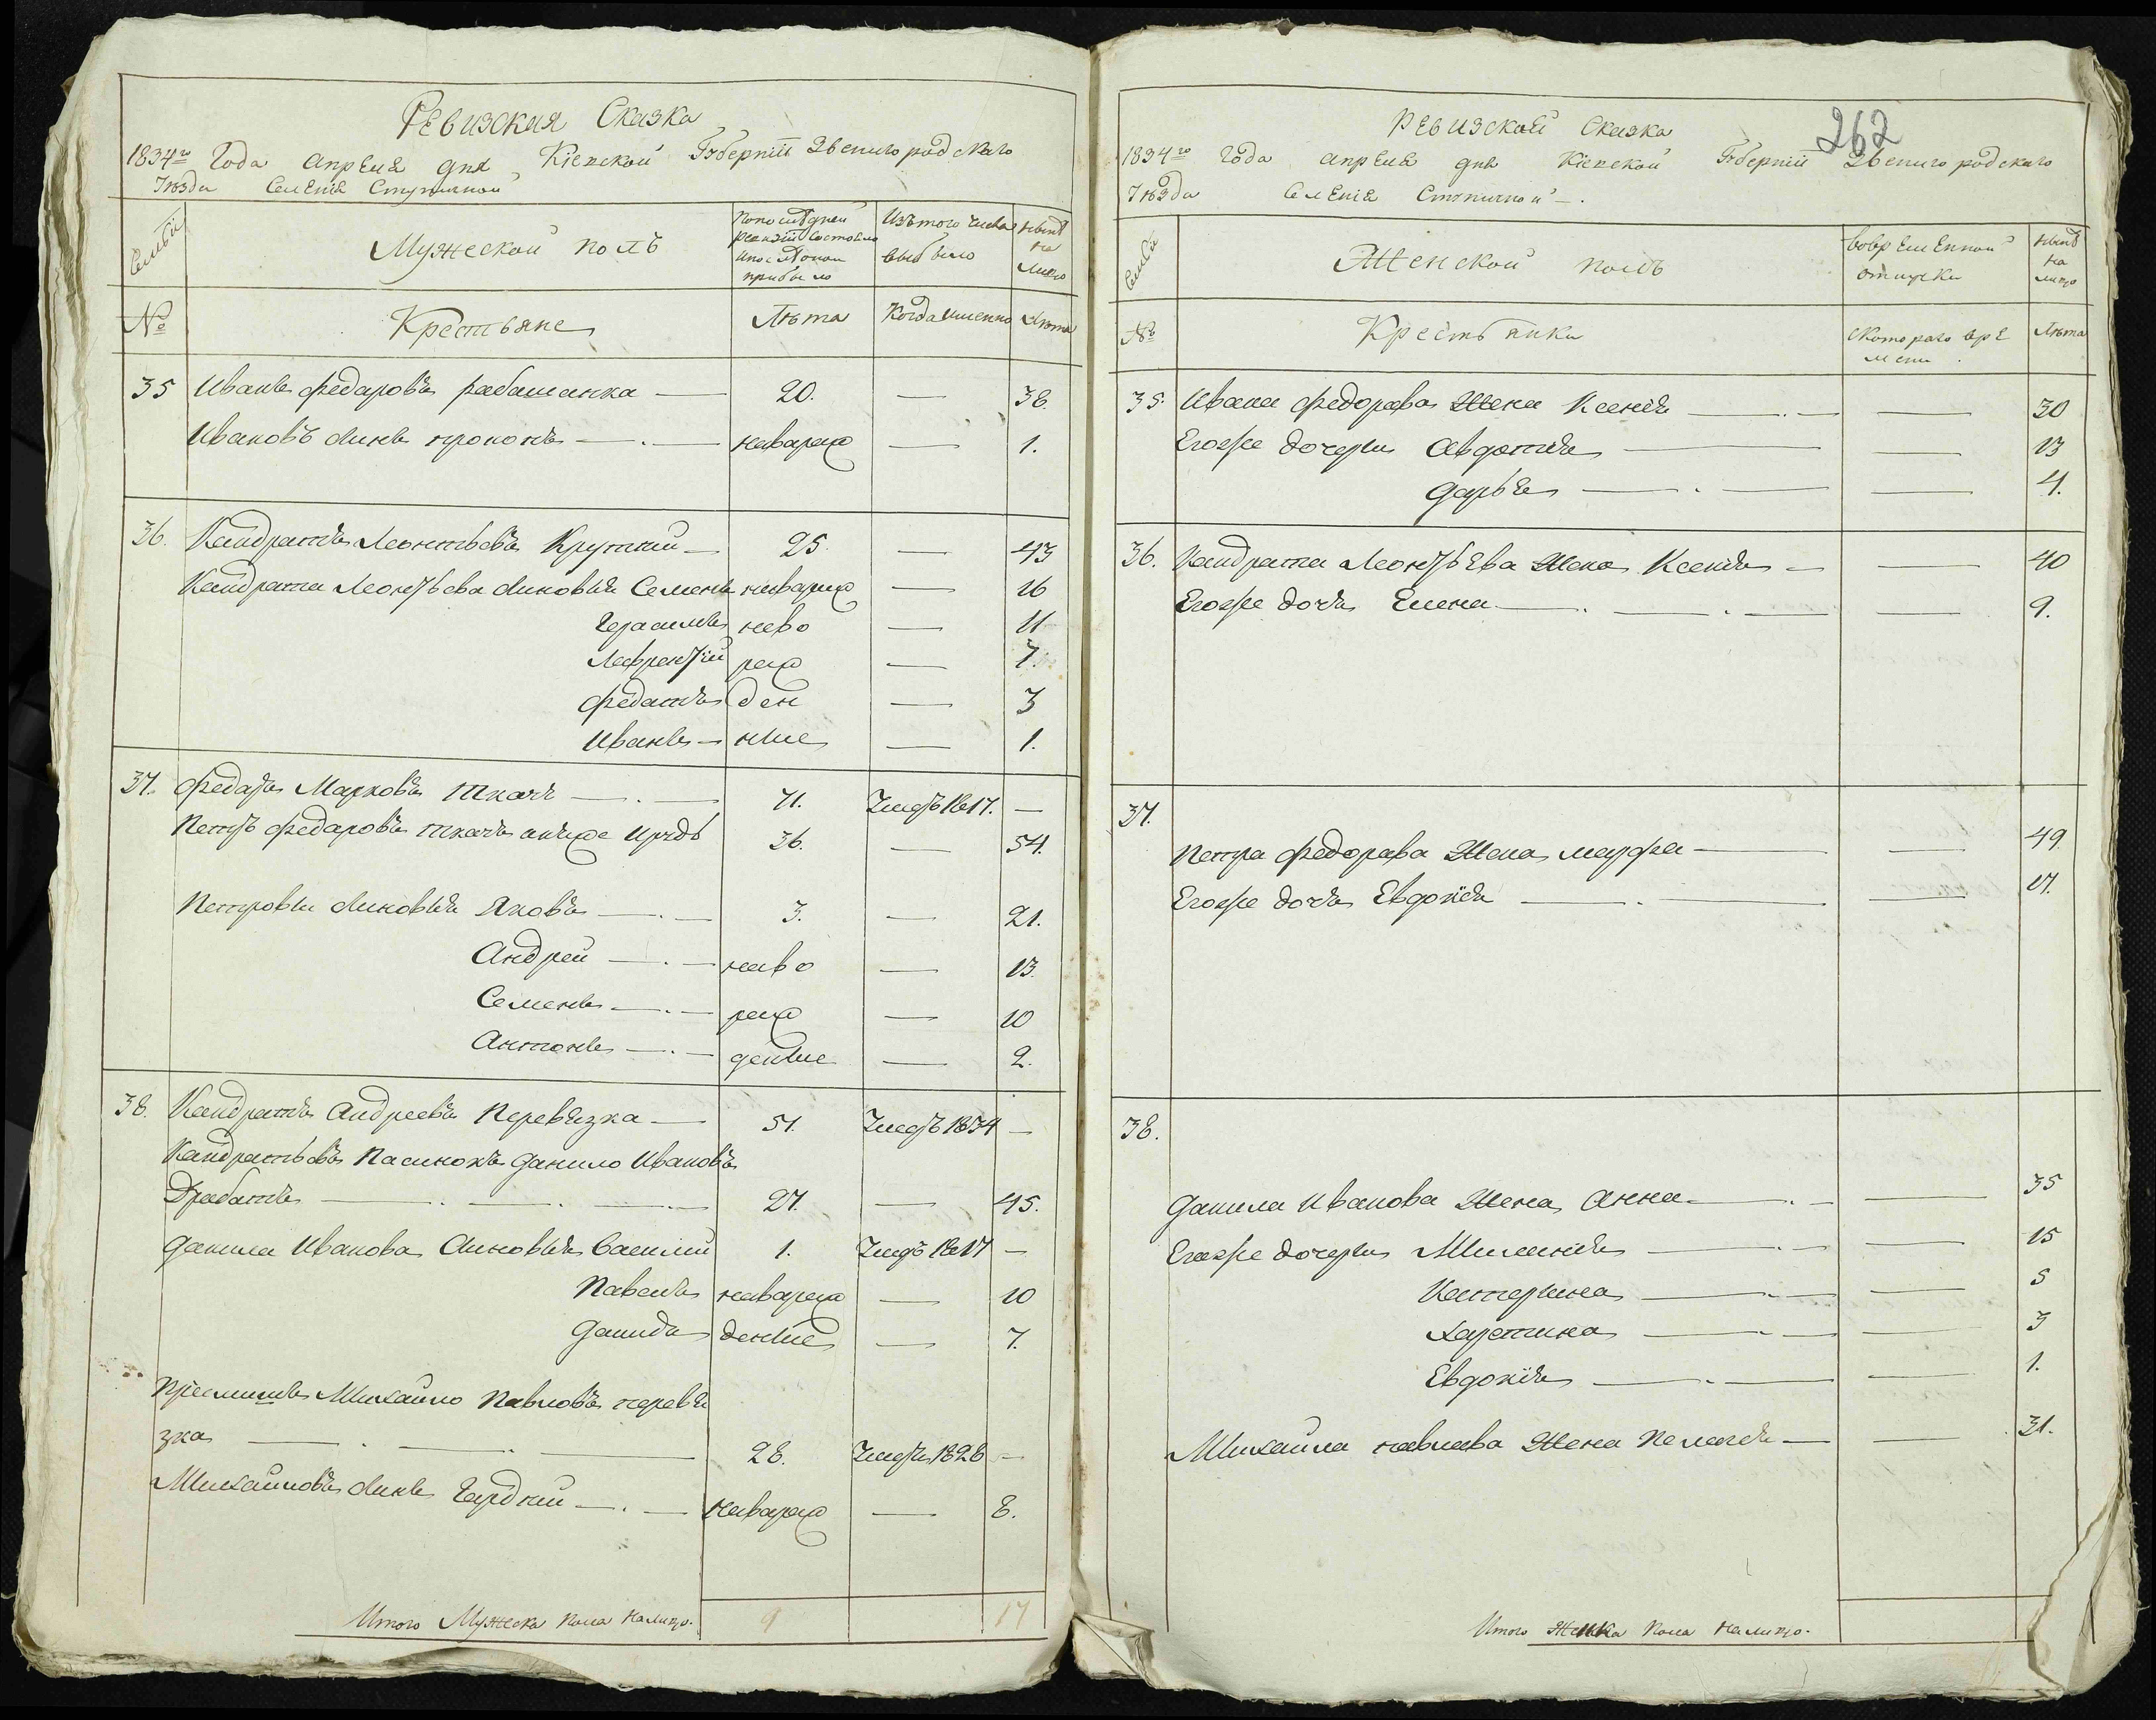 Ревизская Сказка
1834го Года апреля дня Кіевской Губерніи Звенигородского
Уезда Селенія Ступичной
Семьи
Мужеской полъ
Попоследней ревизіи состояло ипоследонаи прибыло
Изътого числа выбыло
ныне на лицо
№
Крестьяне
Лета
Когда имянно
Лета
35 Иванъ федаровъ рабашанка — 20. — 38.
Ивановъ сынъ прокопъ — наварож — 1.
36. Кандратъ Леонтьевъ Крупкий — 25. — 43
Кандрата Леонтьева сыновья Семенъ наварож — 16
Герасимъ наво — 11
Лаврентїй рож — 7.
федатъ ден — 3
Иванъ — ные — 1.
37. федаръ Марковъ ткачъ — 71. Умеръ 1817. —
Петръ федаровъ ткачъ онже 36. — 54.
Петровы сыновья Яковъ — 3. — 21.
Андрей — наво — 13.
Семенъ — рож — 10
Антонъ — денные — 2.
38. Кандратъ Андреевъ Перевязка — 51. Умеръ 1834 —
Кандратьевъ Пасинокъ Данило Ивановъ
Драбатъ — 27. — 45.
Данила Иванова Сыновья Василий 1. Умеръ 1817 —
Павелъ наварож — 10
Давидъ денные — 7.
Прїемышъ Михайло Павловъ перевя
зка — 28. Умеръ 1826 —
Михайловъ сынъ Гардѣй — наварож — 8.
Итого Мужеска пола налицо. 9 17
262
Ревизской Сказка
1834го Года апреля дня Кіевской Губерніи Звенигородскаго
Уезда Селенія Ступичной.
Семьи
Женской полъ
вовременной отлучки
ныне на лицо
№
Крестьянки
скотораго времени
Лета
35. Ивана федорава Жена Ксенія — — 30
Егожъ дочери Авдотья — — 13
Дарья — — 4.
36. Кандрата Леонтьева Жена Ксенія — — 40
Егоже дочь Елена — — 9.
37.
Петра федорава Жена марфа — — 49
Егоже дочь Евдокїя — — 17.
38.
Данила Иванова Жена Анна — — 35
Егоже дочери Миланія — — 15
Катерина — — 5
Харетина — — 3
Евдокїя — — 1.
Михайла павлава Жена Пелагея — — 31.
Итого Женска пола налицо.